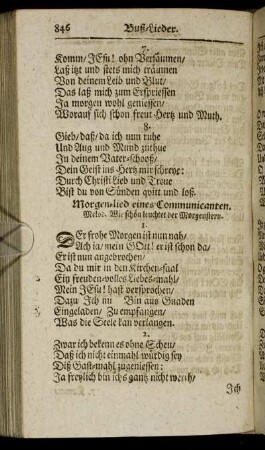 846 Buß-Lieder.
7.
Komm/ JEsu! ohn Versäumen/
Laß itzt und stets mich träumen
Von deinem Leib und Blut/
Das laß mich zum Ersprießen
Ja morgen wohl geniessen/
Worauf sich schon freut Hertz und Muth.
8.
Gieb/ daß/ da ich nun ruhe
Und Aug und Mund zuthue
In deinem Vater-schooß/
Dein Geist ins Hertz mir schreye:
Durch Christi Lieb und Treue
Bist du von Sünden quitt und loß.
Morgen-lied eines Communicanten.
Melod. Wie schön leuchtet der Morgenstern.
1.
DEr frohe Morgen ist nun nah/
Ach ja/ mein GOtt! er ist schon da/
Er ist nun angebrochen/
Da du mir in den Kirchen-saal
Ein freuden-volles Liebes-mahl/
Mein JEsu! hast versprochen/
Dazu Ich nu Bin aus Gnaden
Eingeladen/ Zu empfangen/
Was die Seele kan verlangen.
2.
Zwar ich bekenn es ohne Scheu/
Daß ich nicht einmahl würdig sey
Diß Gast-mahl zugeniessen:
Ja freylich bin ichs gantz nicht werth/
Ich